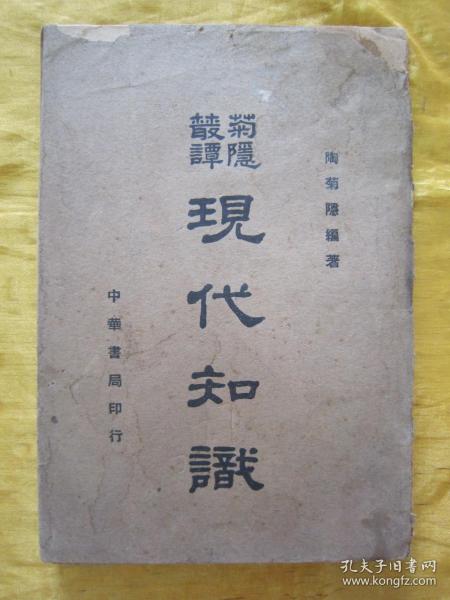 陶菊隱編著
菊隱
叢譚
現代知識
中華書局印行
孔夫子旧书网
www.kongfz.com